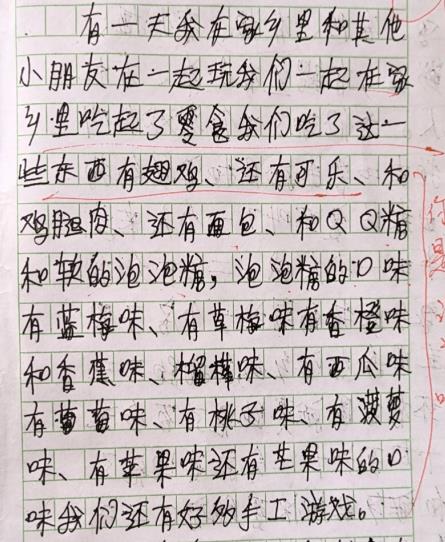 有一天我在家乡里和其他
小朋友在一起玩我们一起在家
乡里吃起了零食我们吃了这一
些东西有翅鸡、还有可乐、和
鸡腿肉、还有面包、和QQ糖
和软的泡泡糖，泡泡糖的口味
有蓝莓味、有草莓味有香橙味
和香蕉味、榴槤味、有西瓜味
有葡萄味、有桃子味、有菠萝
味、有苹果味还有芒果味的口
味我们还有好多手工游戏。
你
是